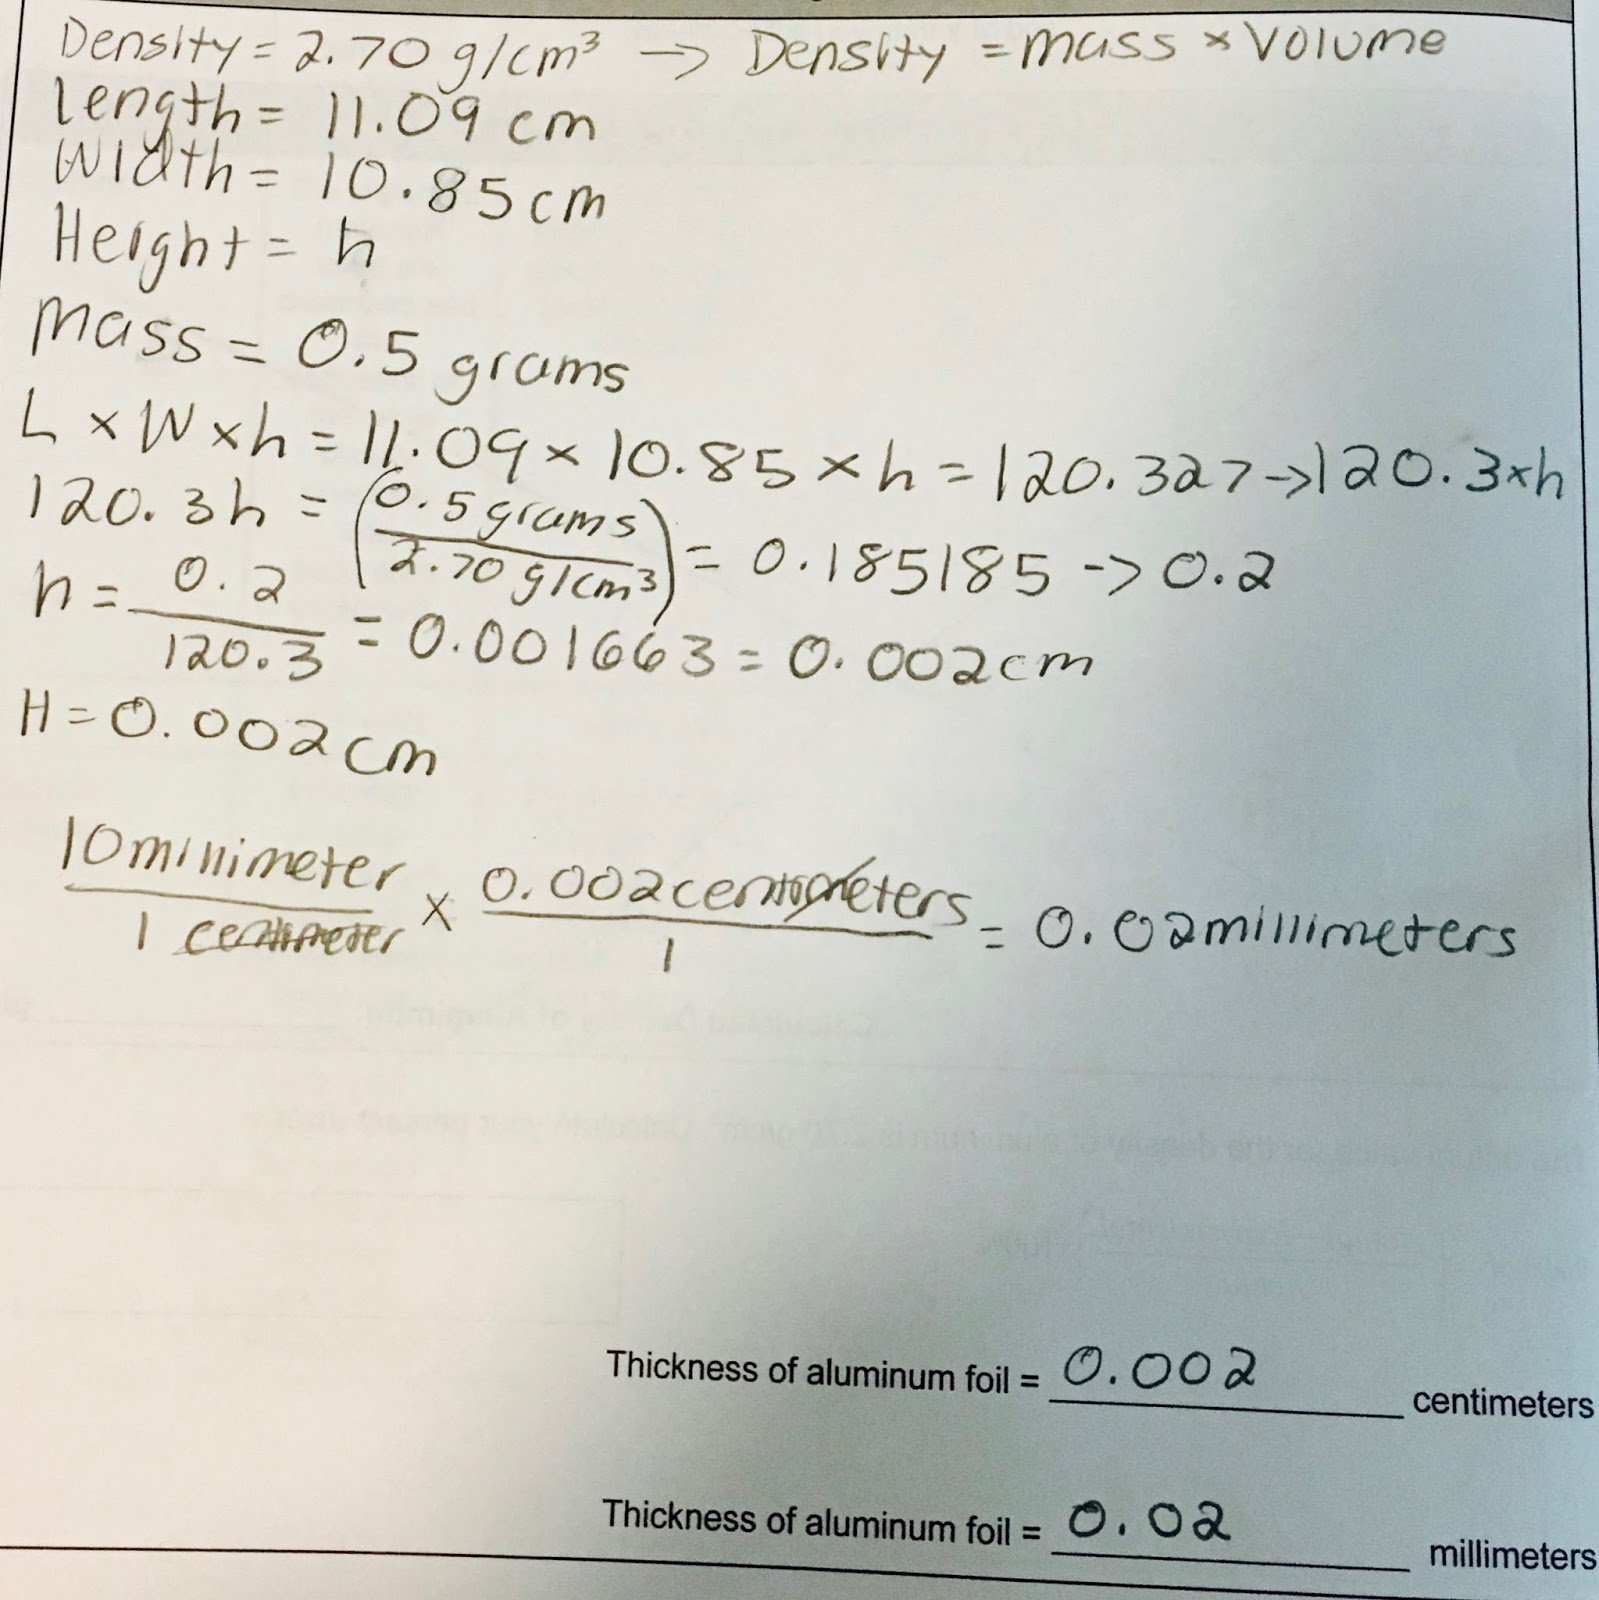 Density = 2.70 g/cm³ → Density = mass × volume
Length = 11.09 cm
Width = 10.85 cm
Height = h
Mass = 0.5 grams
L × W × h = 11.09 × 10.85 × h = 120.327 → 120.3 × h
120.3h = (0.5 grams / 2.70 g/cm³) = 0.185185 -> 0.2
h = 0.2 / 120.3 = 0.001663 = 0.002 cm
H = 0.002 cm
10 millimeter / 1 centimeter × 0.002 centimeters / 1 = 0.02 millimeters
Thickness of aluminum foil = 0.002 centimeters
Thickness of aluminum foil = 0.02 millimeters